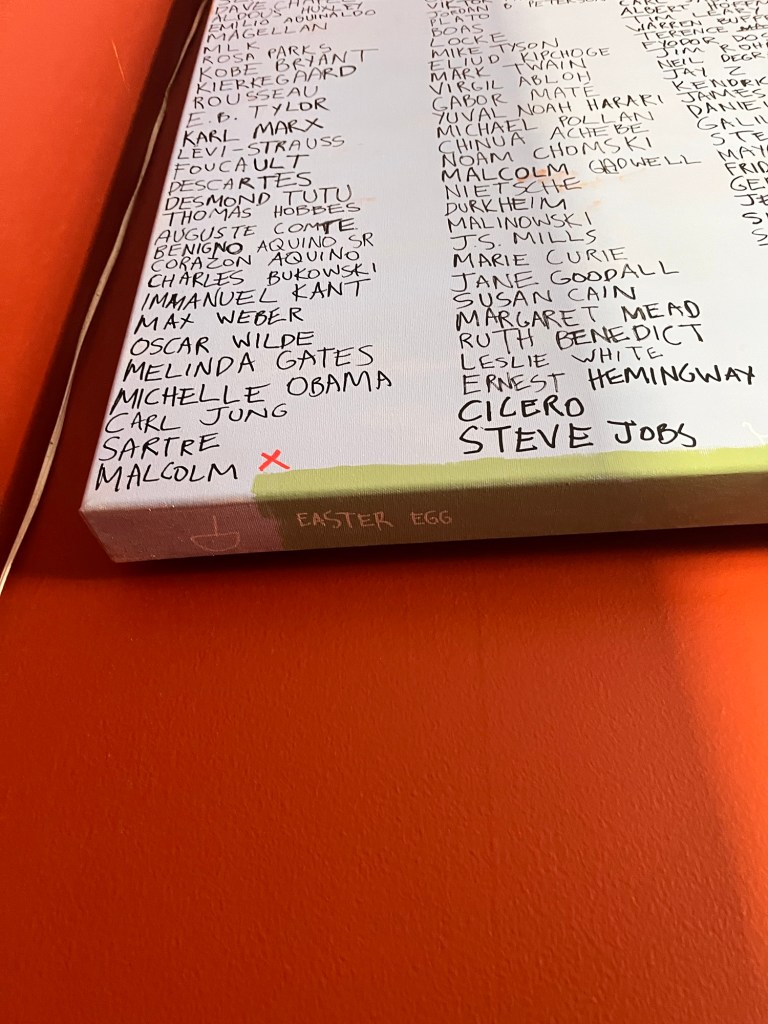 DAVE
ALDOUS HUXLEY
EMILIO AGUINALDO
MAGELLAN
MLK
ROSA PARKS
KOBE BRYANT
KIERKEGAARD
ROUSSEAU
E.B. TYLOR
KARL MARX
LEVI-STRAUSS
FOUCAULT
DESCARTES
DESMOND TUTU
THOMAS HOBBES
AUGUSTE COMTE
BENIGNO AQUINO SR
CORAZON AQUINO
CHARLES BUKOWSKI
IMMANUEL KANT
MAX WEBER
OSCAR WILDE
MELINDA GATES
MICHELLE OBAMA
CARL JUNG
SARTRE
MALCOLM X
VIKTOR
PLATO
BOAS
LOCKE
MIKE TYSON
ELIUD KIPCHOGE
MARK TWAIN
VIRGIL ABLOH
GABOR MATE
YUVAL NOAH HARARI
MICHAEL POLLAN
CHINUA ACHEBE
NOAM CHOMSKI
MALCOLM GADWELL
NIETSCHE
DURKHEIM
MALINOWSKI
J.S. MILLS
MARIE CURIE
JANE GOODALL
SUSAN CAIN
MARGARET MEAD
RUTH BENEDICT
LESLIE WHITE
ERNEST HEMINGWAY
CICERO
STEVE JOBS
ALBERT
TIM
WARREN BUFF
TERENCE
FYODOR DOS
JIM ROHN
NEIL DEGR
JAY Z
KENDRIC
JAMES
DANIEL
GALIL
STE
MAY
FRID
GE
JE
S
S
EASTER EGG